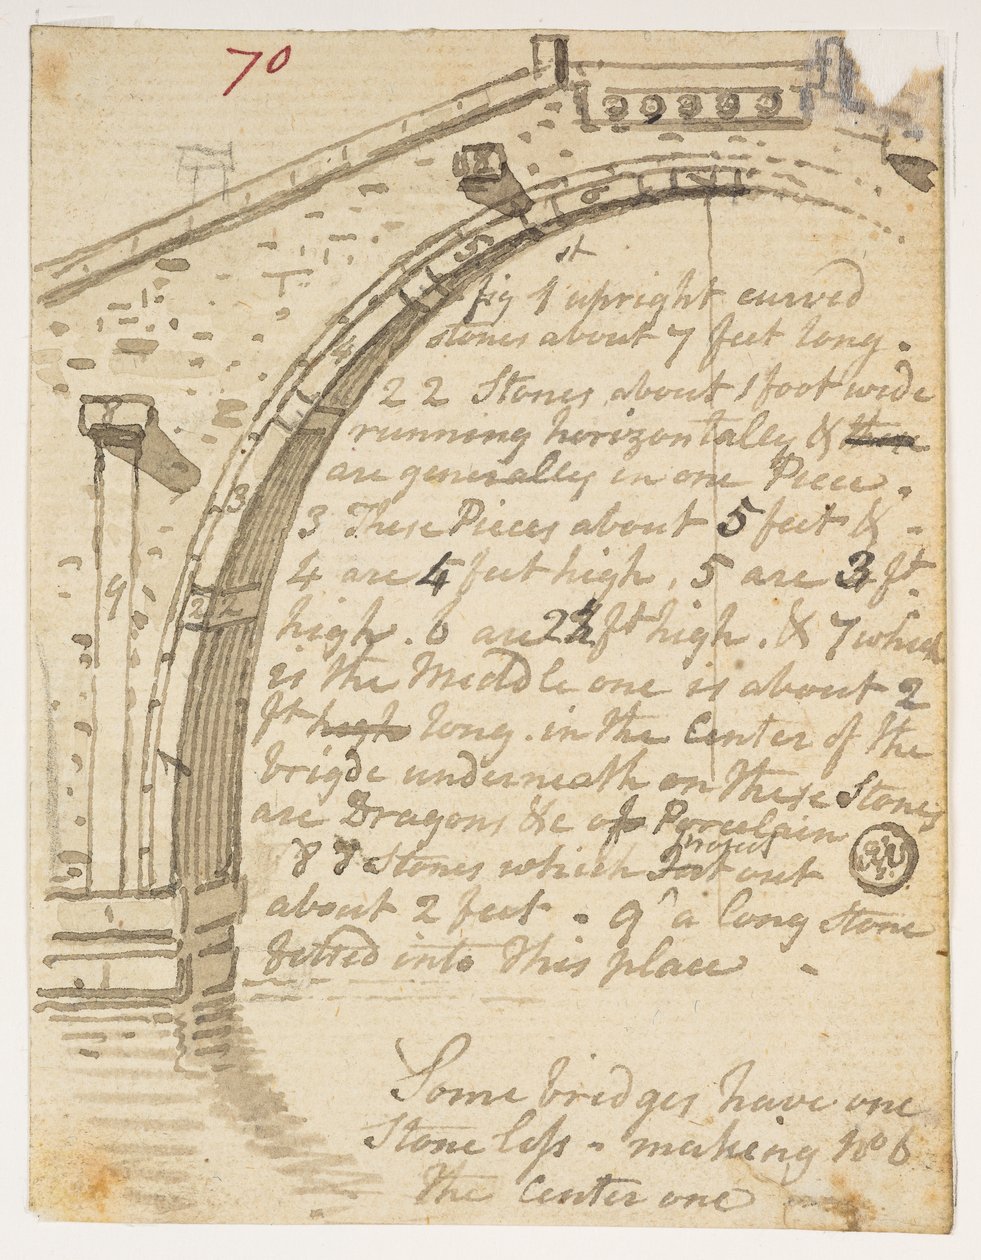 70
8
6
7
5
st
fig 1 upright curved
stones about 7 feet long.
4
2 2 Stones about 1 foot wide
running horizontally &
8
are generally in one Piece.
3
3 These Pieces about 5 feet & -
4 are 4 feet high, 5 are 3 ft.
9
2 2
high. 6 are 2½ ft high. & 7 which
is the Middle one is about 2
ft high long. in the Center of the
1
brigde underneath on these Stones
are Dragons &c of Porcelain
project
8 8 Stones which Jut out
about 2 feet - 9 a long Stone
fitted into this place -
Some bridges have one
Stone less - making No 6
The Center one